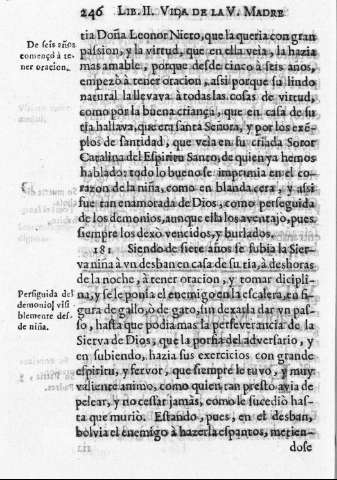 246 LIB. II. VIDA DE LA V. MADRE
De seis años
començò à te-
ner oracion.
tia Doña Leonor Nieto, que la queria con gran
passion, y la virtud, que en ella veia, la hazia
mas amable, porque desde cinco à seis años,
empezò à tener oracion, assi porque su lindo
natural la llevava à todas las cosas de virtud,
como por la buena criança, que en casa de su
tia hallava, que era santa Señora, y por los exẽ-
plos de santidad, que veia en su criada Soror
Catalina del Espiritu Santo, de quien ya hemos
hablado: todo lo bueno se imprimia en el co-
razon de la niña, como en blanda cera, y assi
fue tan enamorada de Dios, como perseguida
de los demonios, aunque ella los aventajo, pues
siempre los dexò vencidos, y burlados.
181. Siendo de siete años se subia la Sier-
va niña à vn desban en casa de su tia, à deshoras
de la noche, à tener oracion, y tomar dicipli-
Perseguida del
demonio visi
blemente des-
de niña.
na, y se le ponia el enemigo en la escalera, en fi-
gura de gallo, ò de gato, sin dexarla dar vn pas-
so, hasta que podia mas la perseverancia de la
Sierva de Dios, que la porfia del adversario, y
en subiendo, hazia sus exercicios con grande
espiritu, y fervor, que siempre le tuvo, y muy
valiente animo, como quien tan presto avia de
pelear, y no cessar jamàs, como le sucediò has-
ta que murio. Estando, pues, en el desban,
bolvia el enemigo à hazerla espantos, metien-
dose